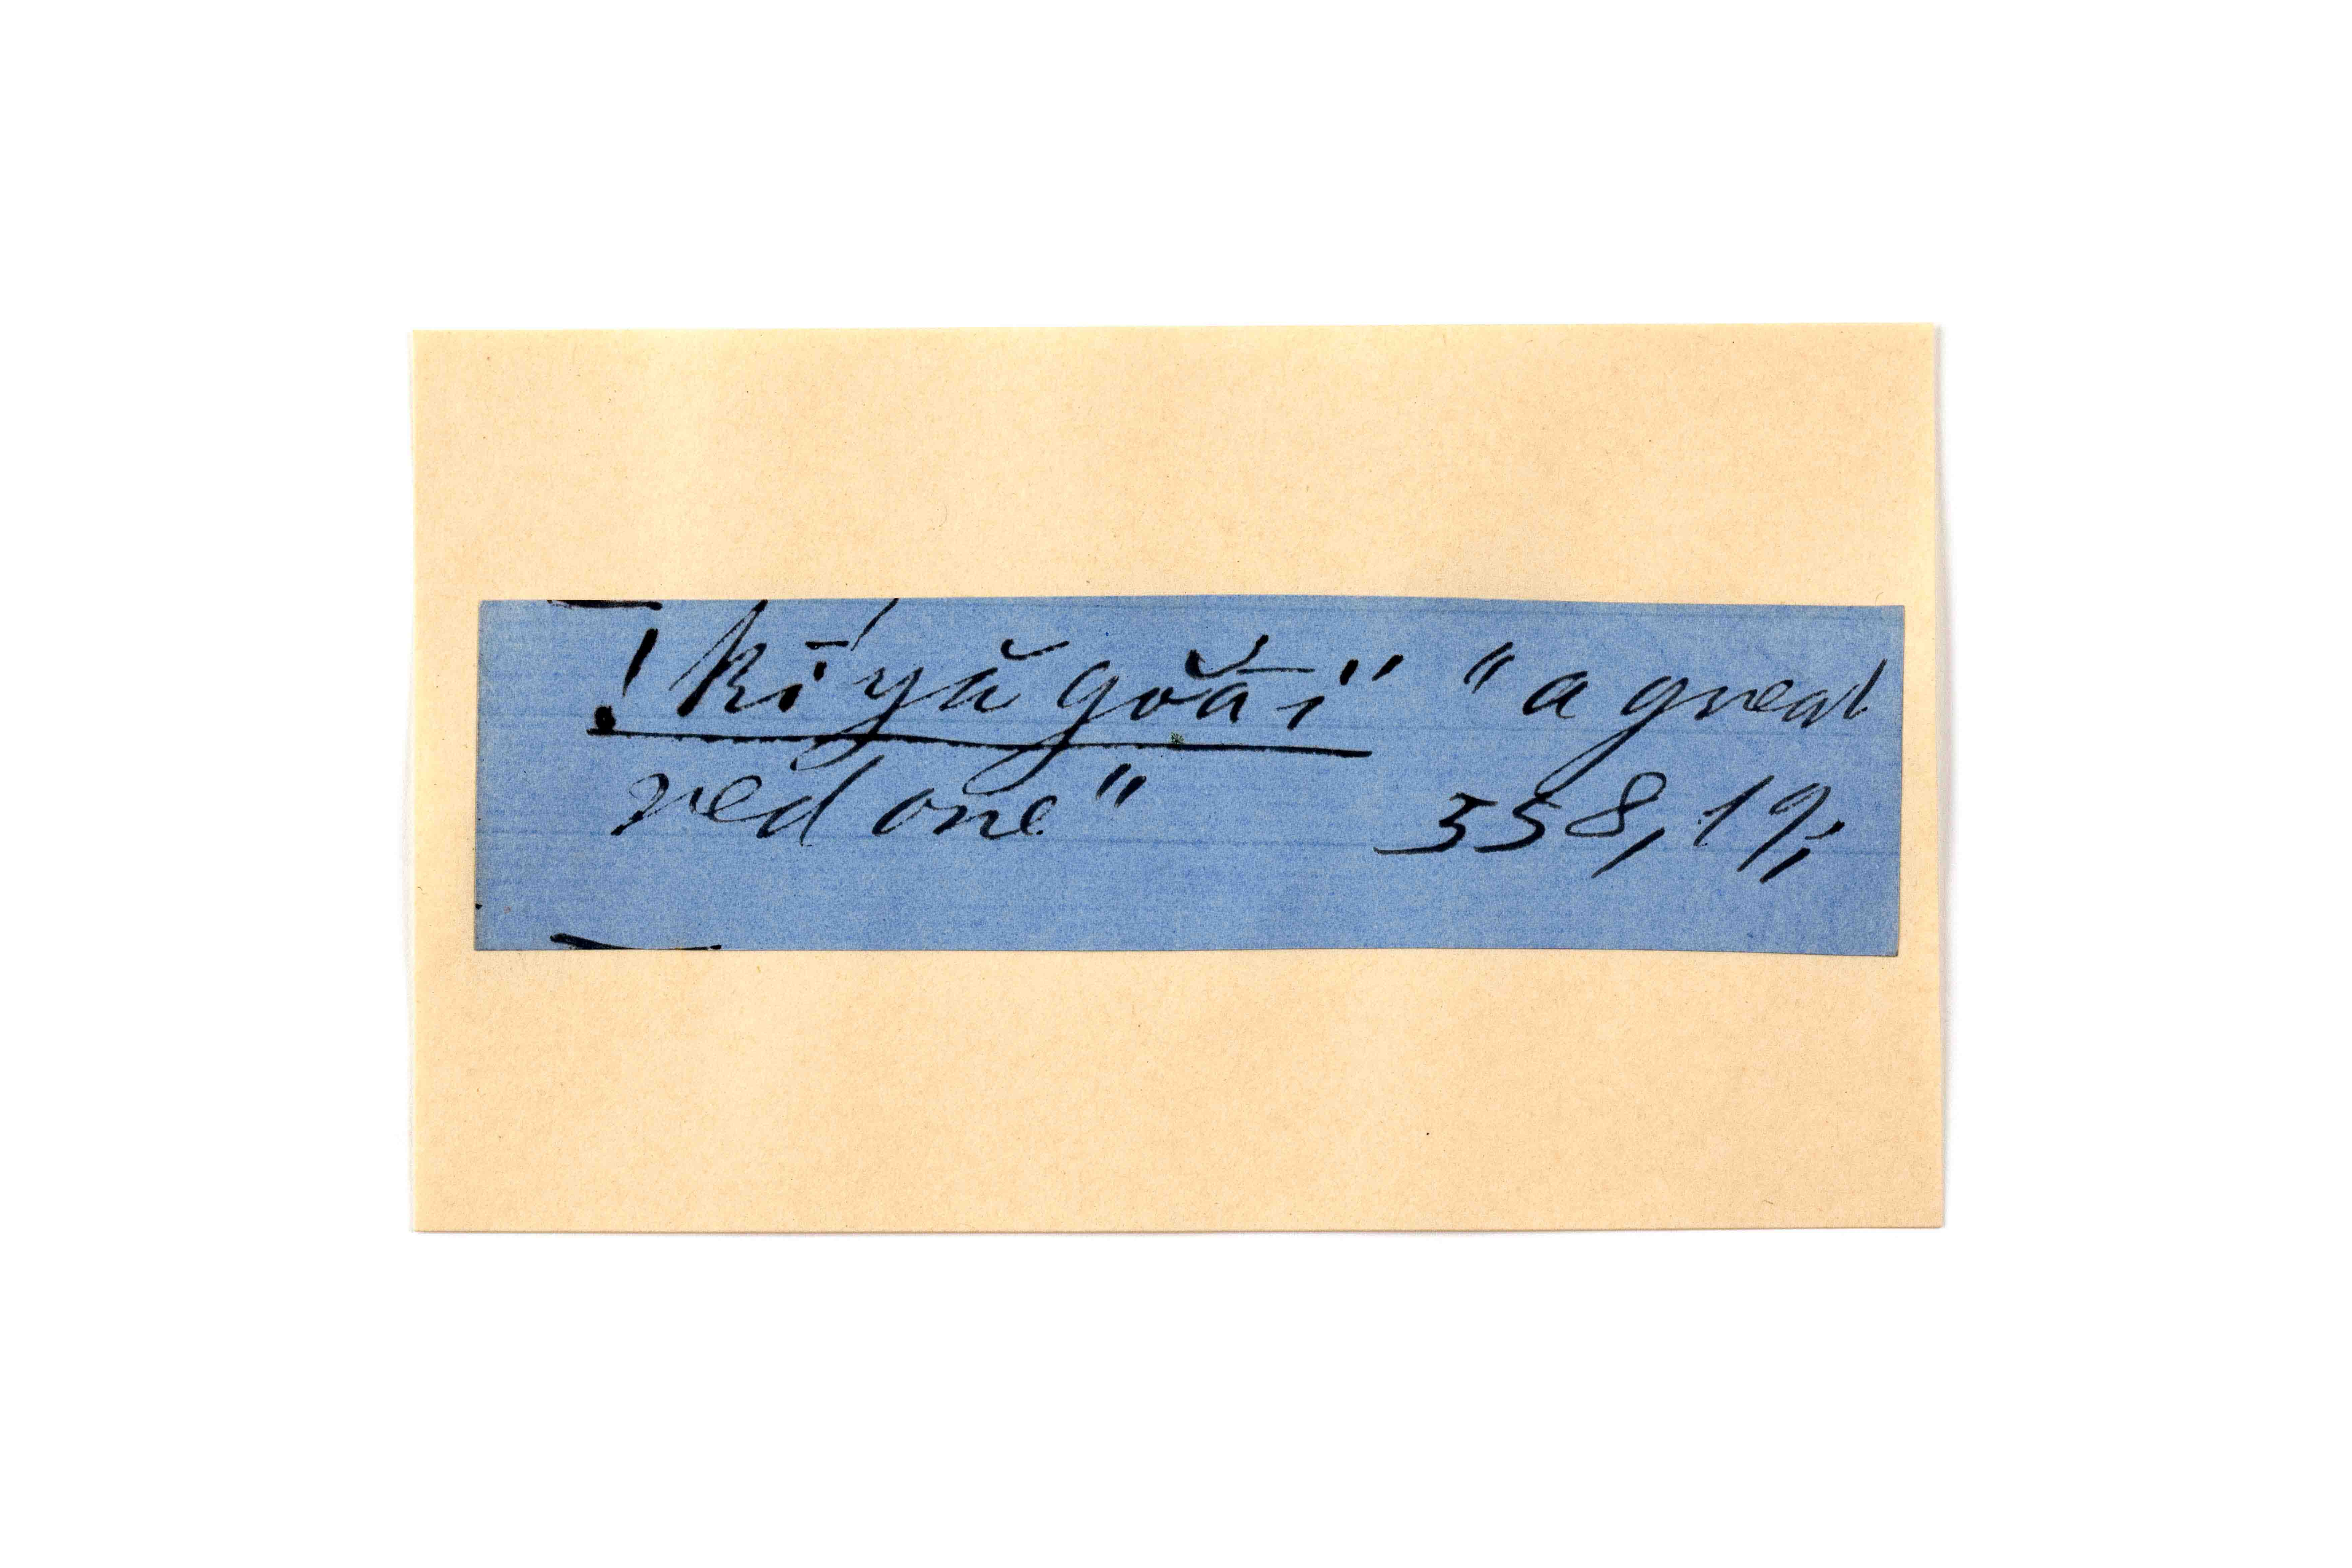 !kī'yă gŏăi" "a great
red one" 358, 19,;